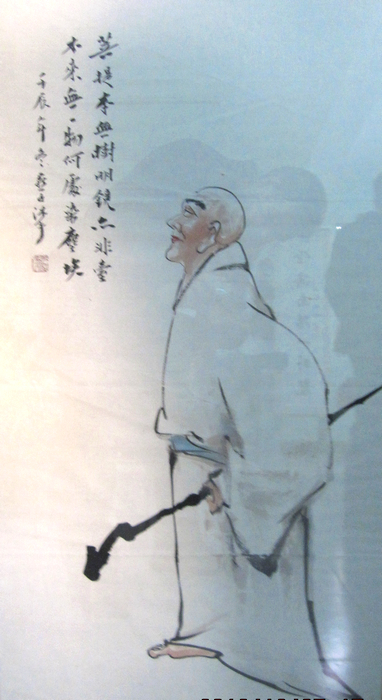 菩提本無樹明鏡亦非臺
本來無一物何處染塵埃
壬辰年冬